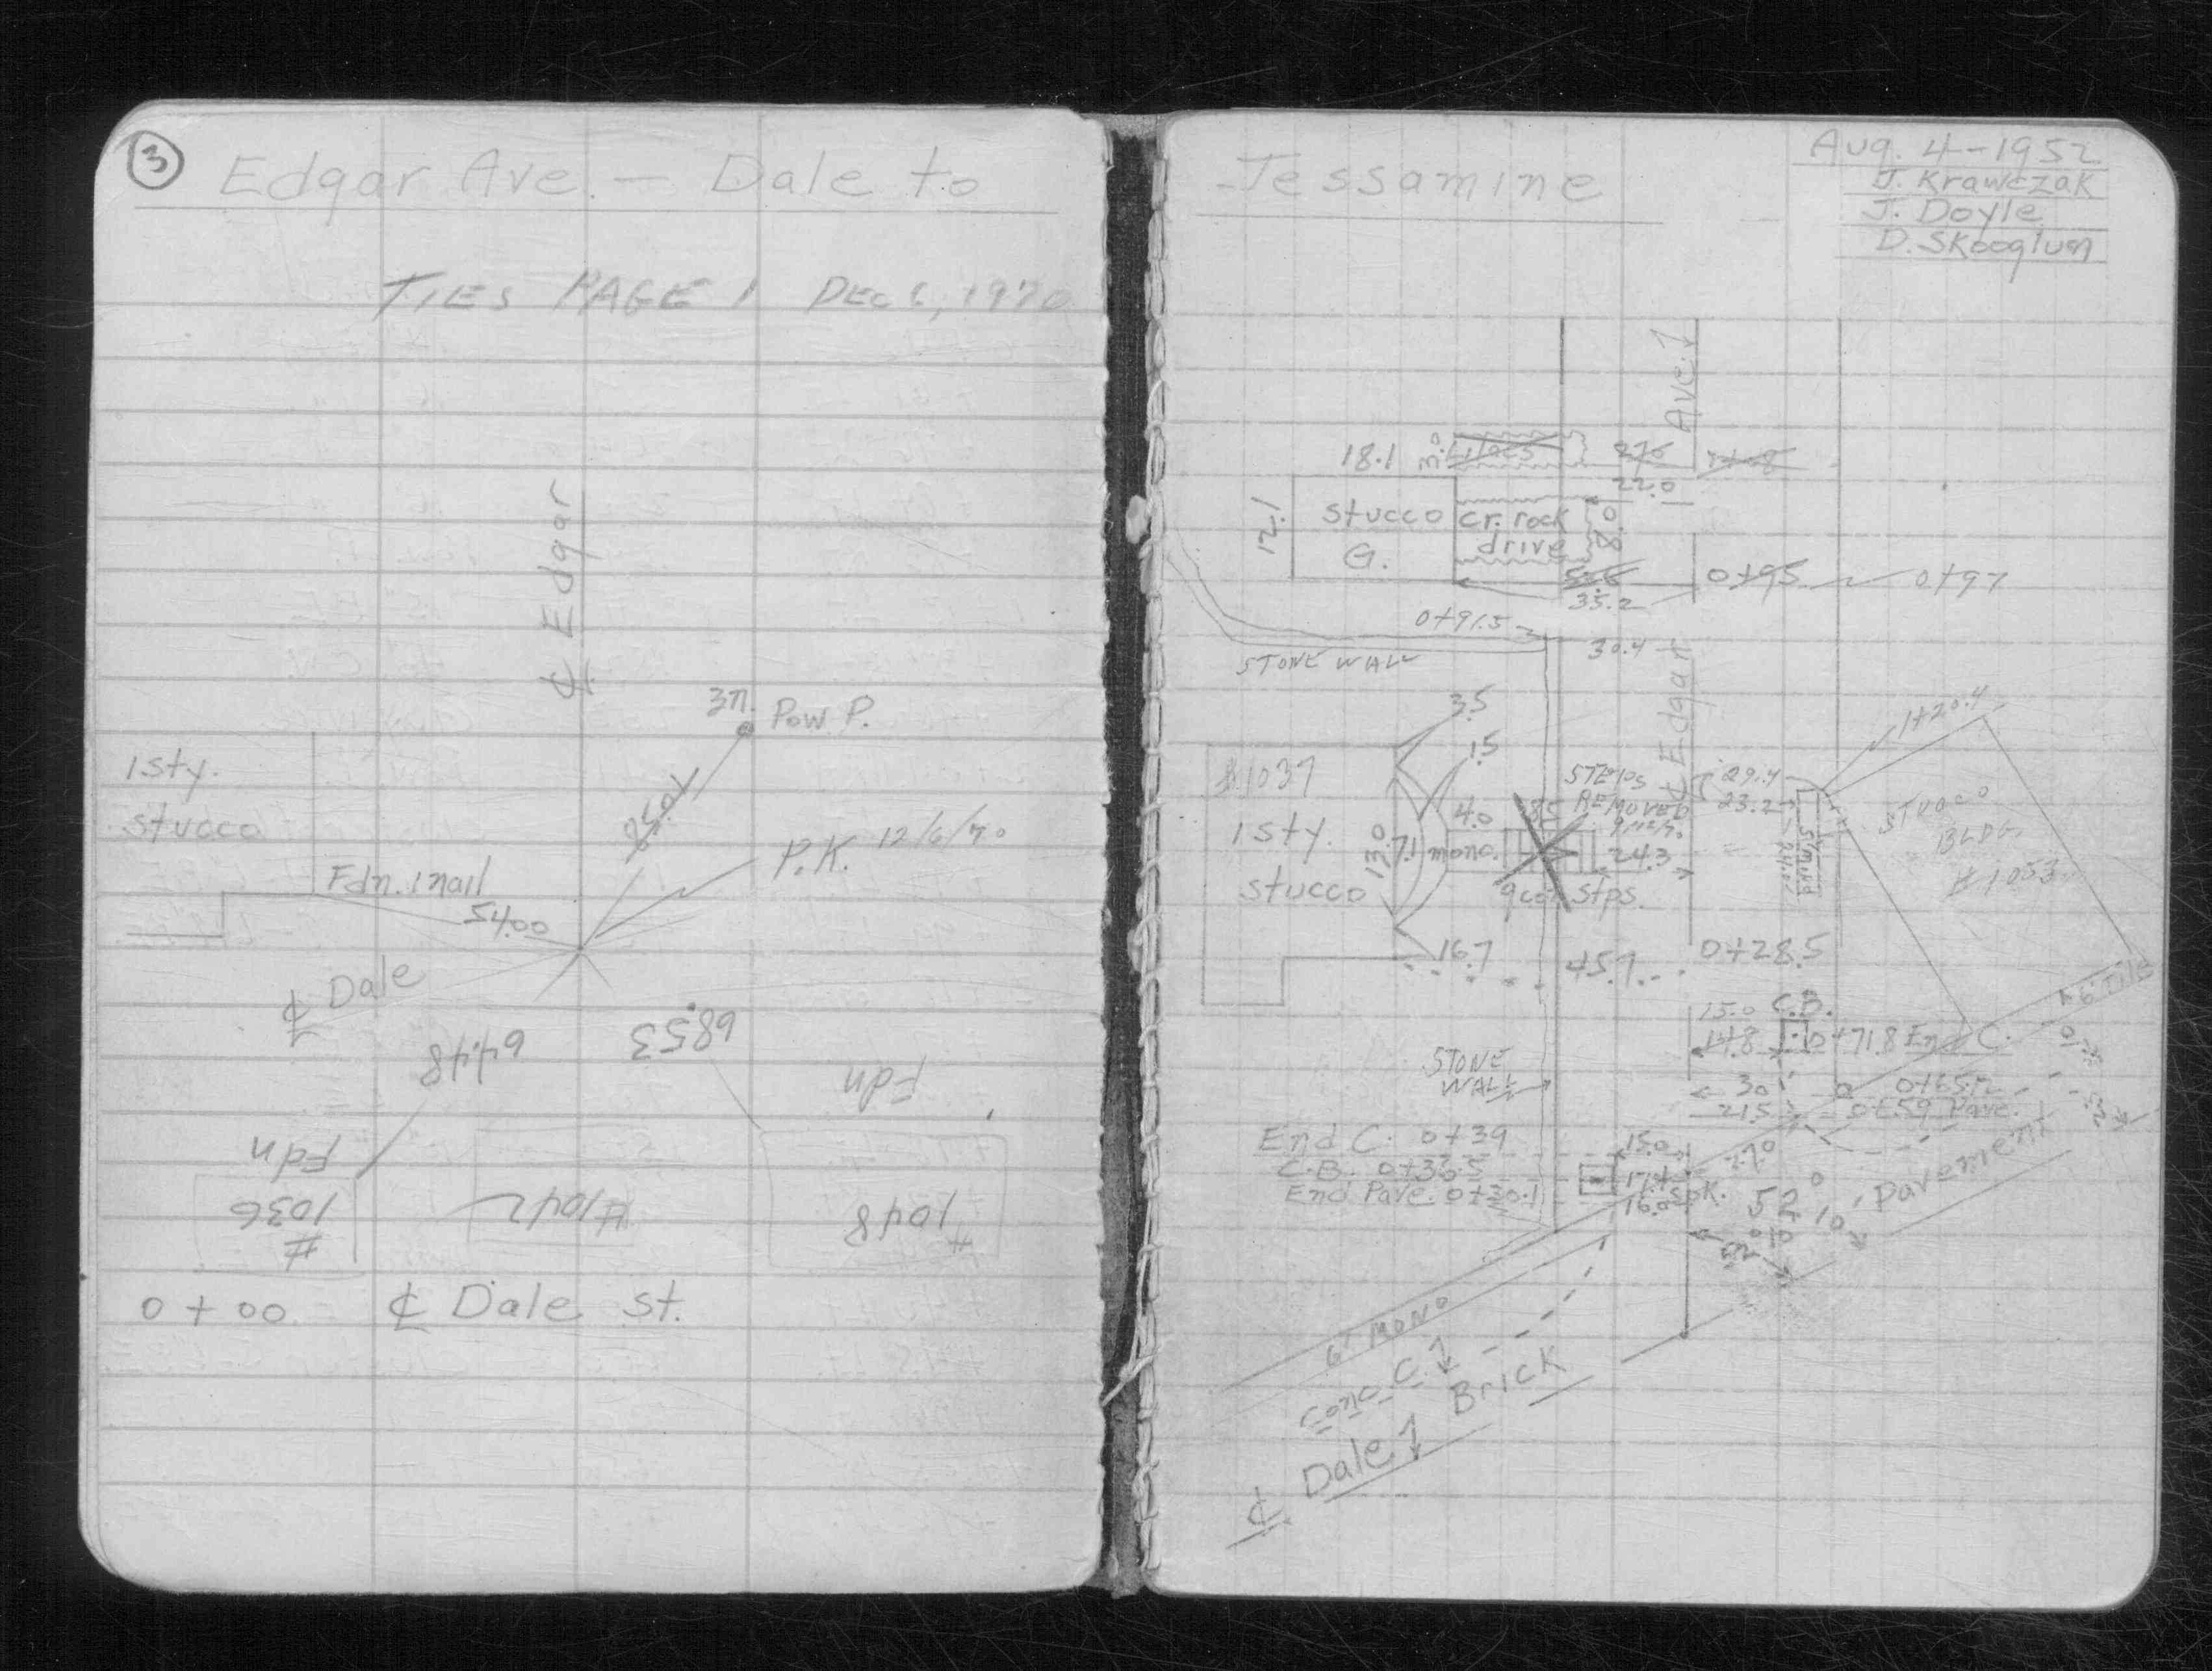 3
Edgar Ave. – Dale to
TIES PAGE 1 DEC 6, 1970
℄ Edgar
3n. Pow. P.
1 sty.
stucco
P.K. 12/6/70
Fdn. 1 nail
54.00
℄ Dale
64.48
68.53
Fdn
Fdn
# 1036
#1042
# 1048
0 + 00 ℄ Dale st.
Jessamine
Aug. 4-1952
J. Krawczak
J. Doyle
D. Skooglun
Ave.
18.1
Lilacs
22.0
12.1
stucco
G.
cr. rock
drive
8.0
35.2
0+95
0+97
0+91.5
STONE WALL
30.4
℄ Edgar
3.5
1.5
#1037
1 sty.
stucco
13.0
7.1
4.0
mono.
STEPS
REMOVED
24.3
stps.
29.4
23.2
1+20.4
STUCCO
BLDG.
#1053
16.7
45.7
0+28.5
15.0 C.B.
14.8
0+71.8 End C.
6' TILE
STONE
WALL
30
0+65.2
21.5
0+59 Pave.
End C. 0+39
C.B. 0+36.5
End Pave. 0+30.1
15.0
17.4
16.0
spk.
52° 10'
Pavement
6' MONO
Conc. C.
Brick
℄ Dale